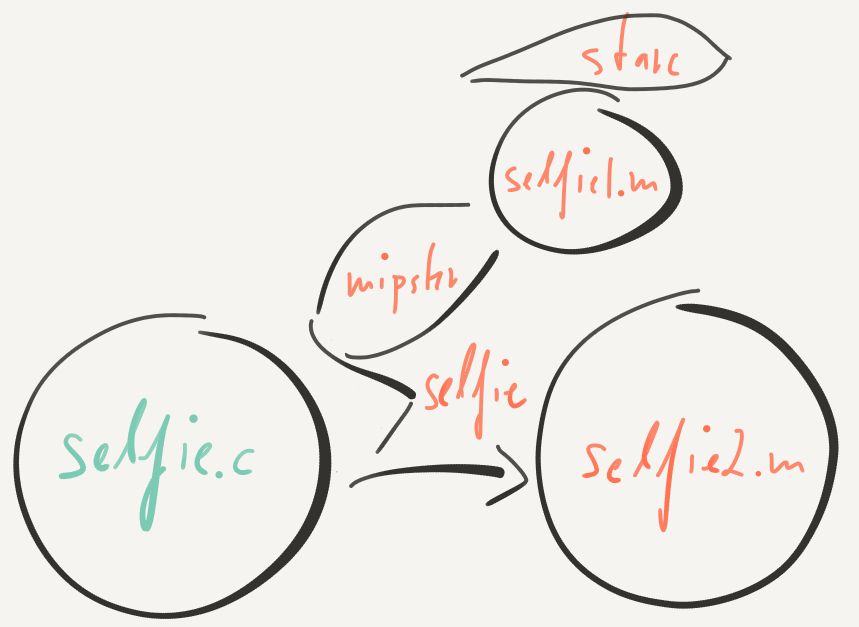 starc
selfie1.m
mipster
selfie
selfie.c
selfie2.m